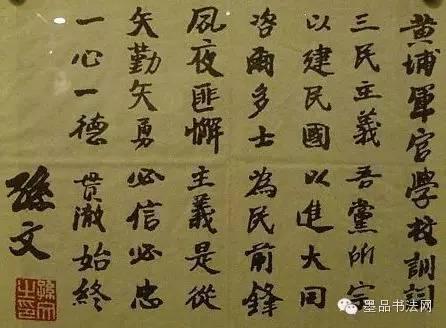 黃埔軍官學校訓詞
三民主義 吾黨所宗
以建民國 以進大同
咨爾多士 為民前鋒
夙夜匪懈 主義是從
矢勤矢勇 必信必忠
一心一德 貫澈始終
孫文
孫文之印
墨品书法网